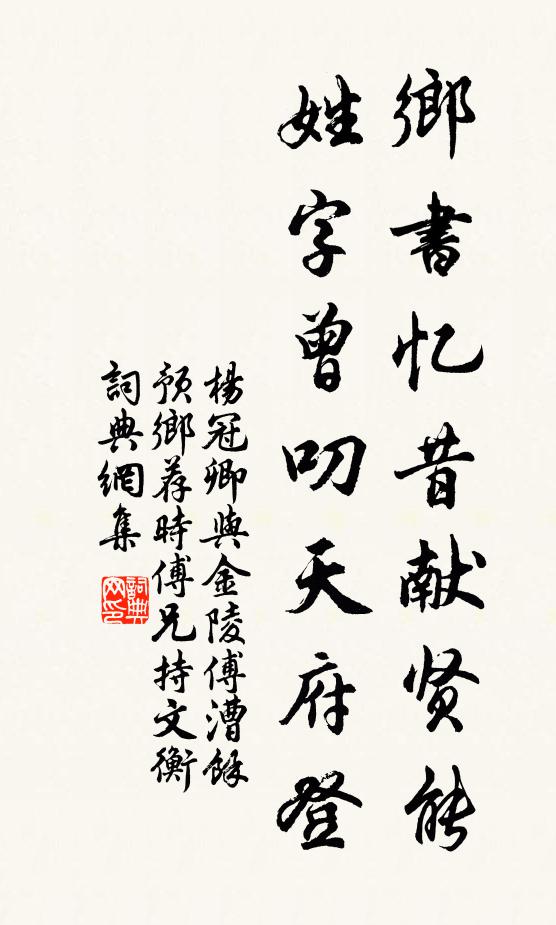 鄉書忆昔献贤能
姓字曾叨天府登
楊冠卿與金陵傅漕餘
預鄉荐時傅兄持文衡
詞典網集
詞典網印